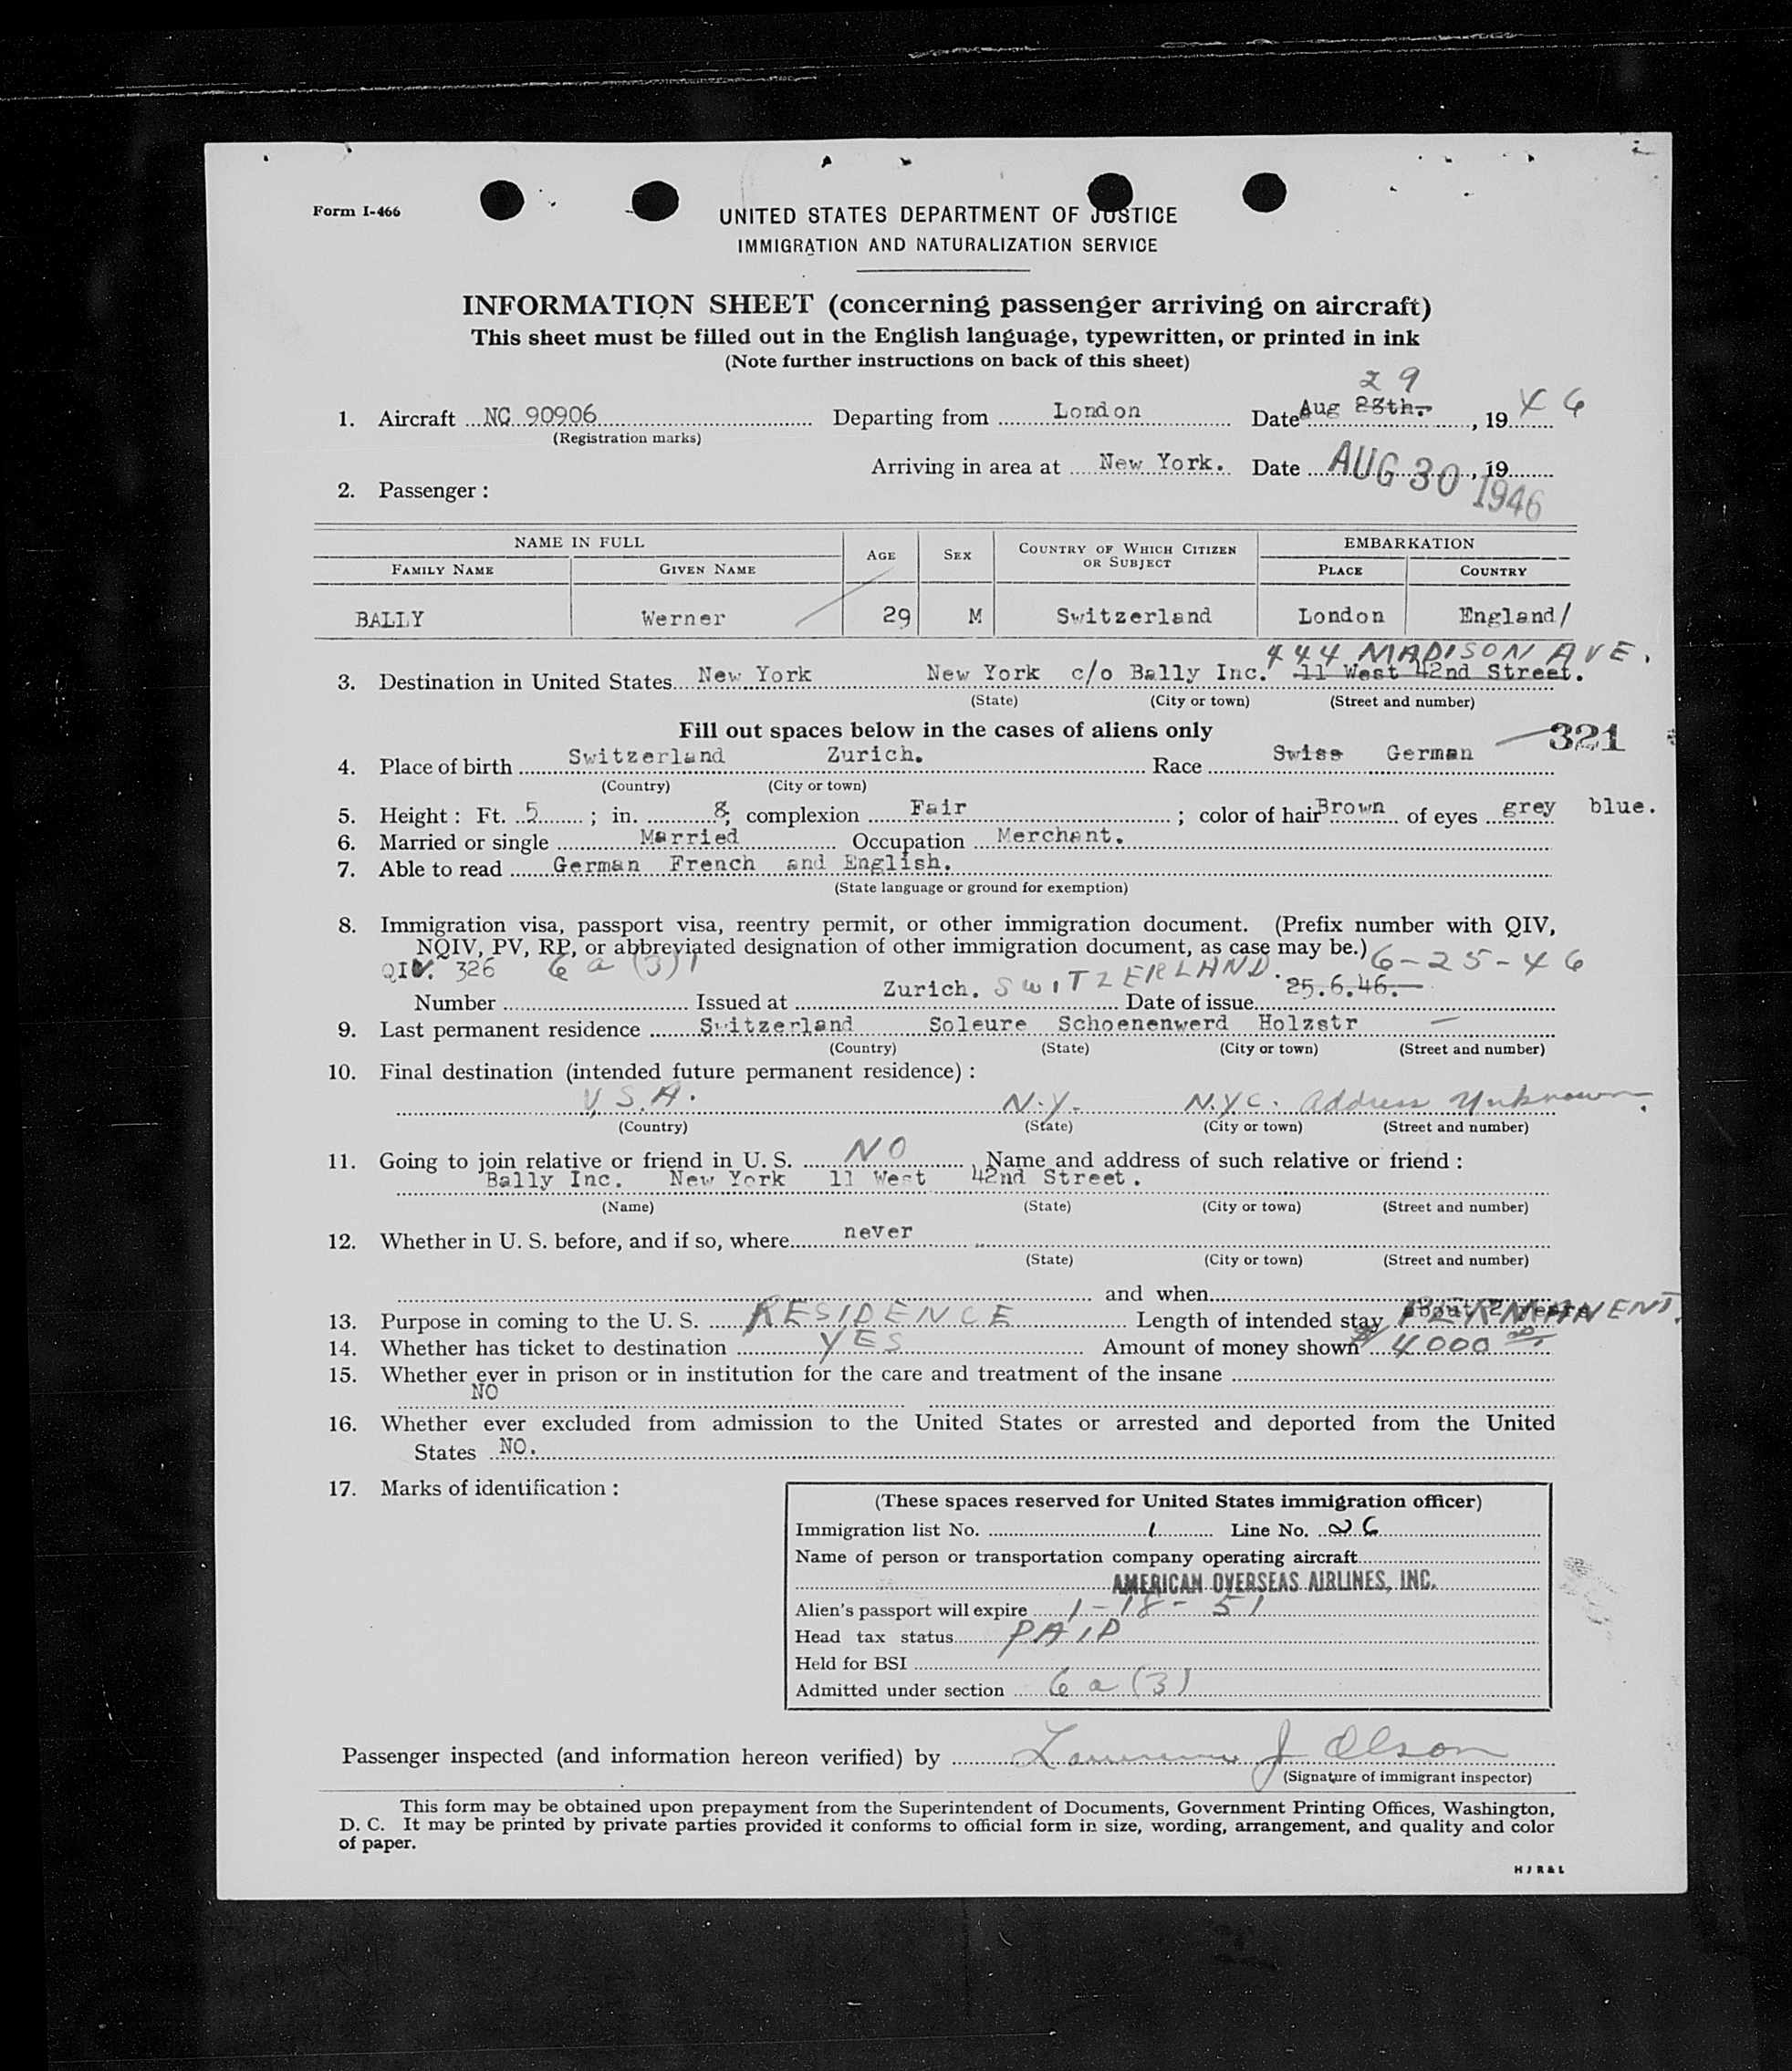 Form I-466
UNITED STATES DEPARTMENT OF JUSTICE
IMMIGRATION AND NATURALIZATION SERVICE
INFORMATION SHEET (concerning passenger arriving on aircraft)
This sheet must be filled out in the English language, typewritten, or printed in ink
(Note further instructions on back of this sheet)
29
1. Aircraft NC 90906 Departing from London Date Aug 28th. , 19 46
(Registration marks)
Arriving in area at New York. Date AUG 30 , 19
1946
2. Passenger :
NAME IN FULL AGE SEX COUNTRY OF WHICH CITIZEN OR SUBJECT EMBARKATION
FAMILY NAME GIVEN NAME PLACE COUNTRY
BALLY Werner 29 M Switzerland London England/
444 MADISON AVE.
3. Destination in United States New York New York c/o Bally Inc. 11 West 42nd Street.
(State) (City or town) (Street and number)
Fill out spaces below in the cases of aliens only
321
4. Place of birth Switzerland Zurich. Race Swiss German
(Country) (City or town)
5. Height : Ft. 5 ; in. 8; complexion Fair ; color of hair Brown of eyes grey blue.
6. Married or single Married Occupation Merchant.
7. Able to read German French and English.
(State language or ground for exemption)
8. Immigration visa, passport visa, reentry permit, or other immigration document. (Prefix number with QIV,
NQIV, PV, RP, or abbreviated designation of other immigration document, as case may be.) 6-25-46
QIV. 326 6 a (3)
Number Issued at Zurich. SWITZERLAND. Date of issue 25.6.46.
9. Last permanent residence Switzerland Soleure Schoenenwerd Holzstr
(Country) (State) (City or town) (Street and number)
10. Final destination (intended future permanent residence) :
U.S.A. N.Y. N.Y.C. Address Unknown.
(Country) (State) (City or town) (Street and number)
11. Going to join relative or friend in U. S. NO Name and address of such relative or friend :
Bally Inc. New York 11 West 42nd Street.
(Name) (State) (City or town) (Street and number)
12. Whether in U. S. before, and if so, where never
(State) (City or town) (Street and number)
and when
13. Purpose in coming to the U. S. RESIDENCE Length of intended stay about 2 years PERMANENT.
14. Whether has ticket to destination YES Amount of money shown $4000 00
15. Whether ever in prison or in institution for the care and treatment of the insane
NO
16. Whether ever excluded from admission to the United States or arrested and deported from the United
States NO.
17. Marks of identification :
(These spaces reserved for United States immigration officer)
Immigration list No. 1 Line No. 26
Name of person or transportation company operating aircraft
AMERICAN OVERSEAS AIRLINES, INC.
Alien's passport will expire 1-18-51
Head tax status PAID
Held for BSI
Admitted under section 6 a (3)
Passenger inspected (and information hereon verified) by Lawrence J Olson
(Signature of immigrant inspector)
This form may be obtained upon prepayment from the Superintendent of Documents, Government Printing Offices, Washington,
D. C. It may be printed by private parties provided it conforms to official form in size, wording, arrangement, and quality and color
of paper.
H J R & L